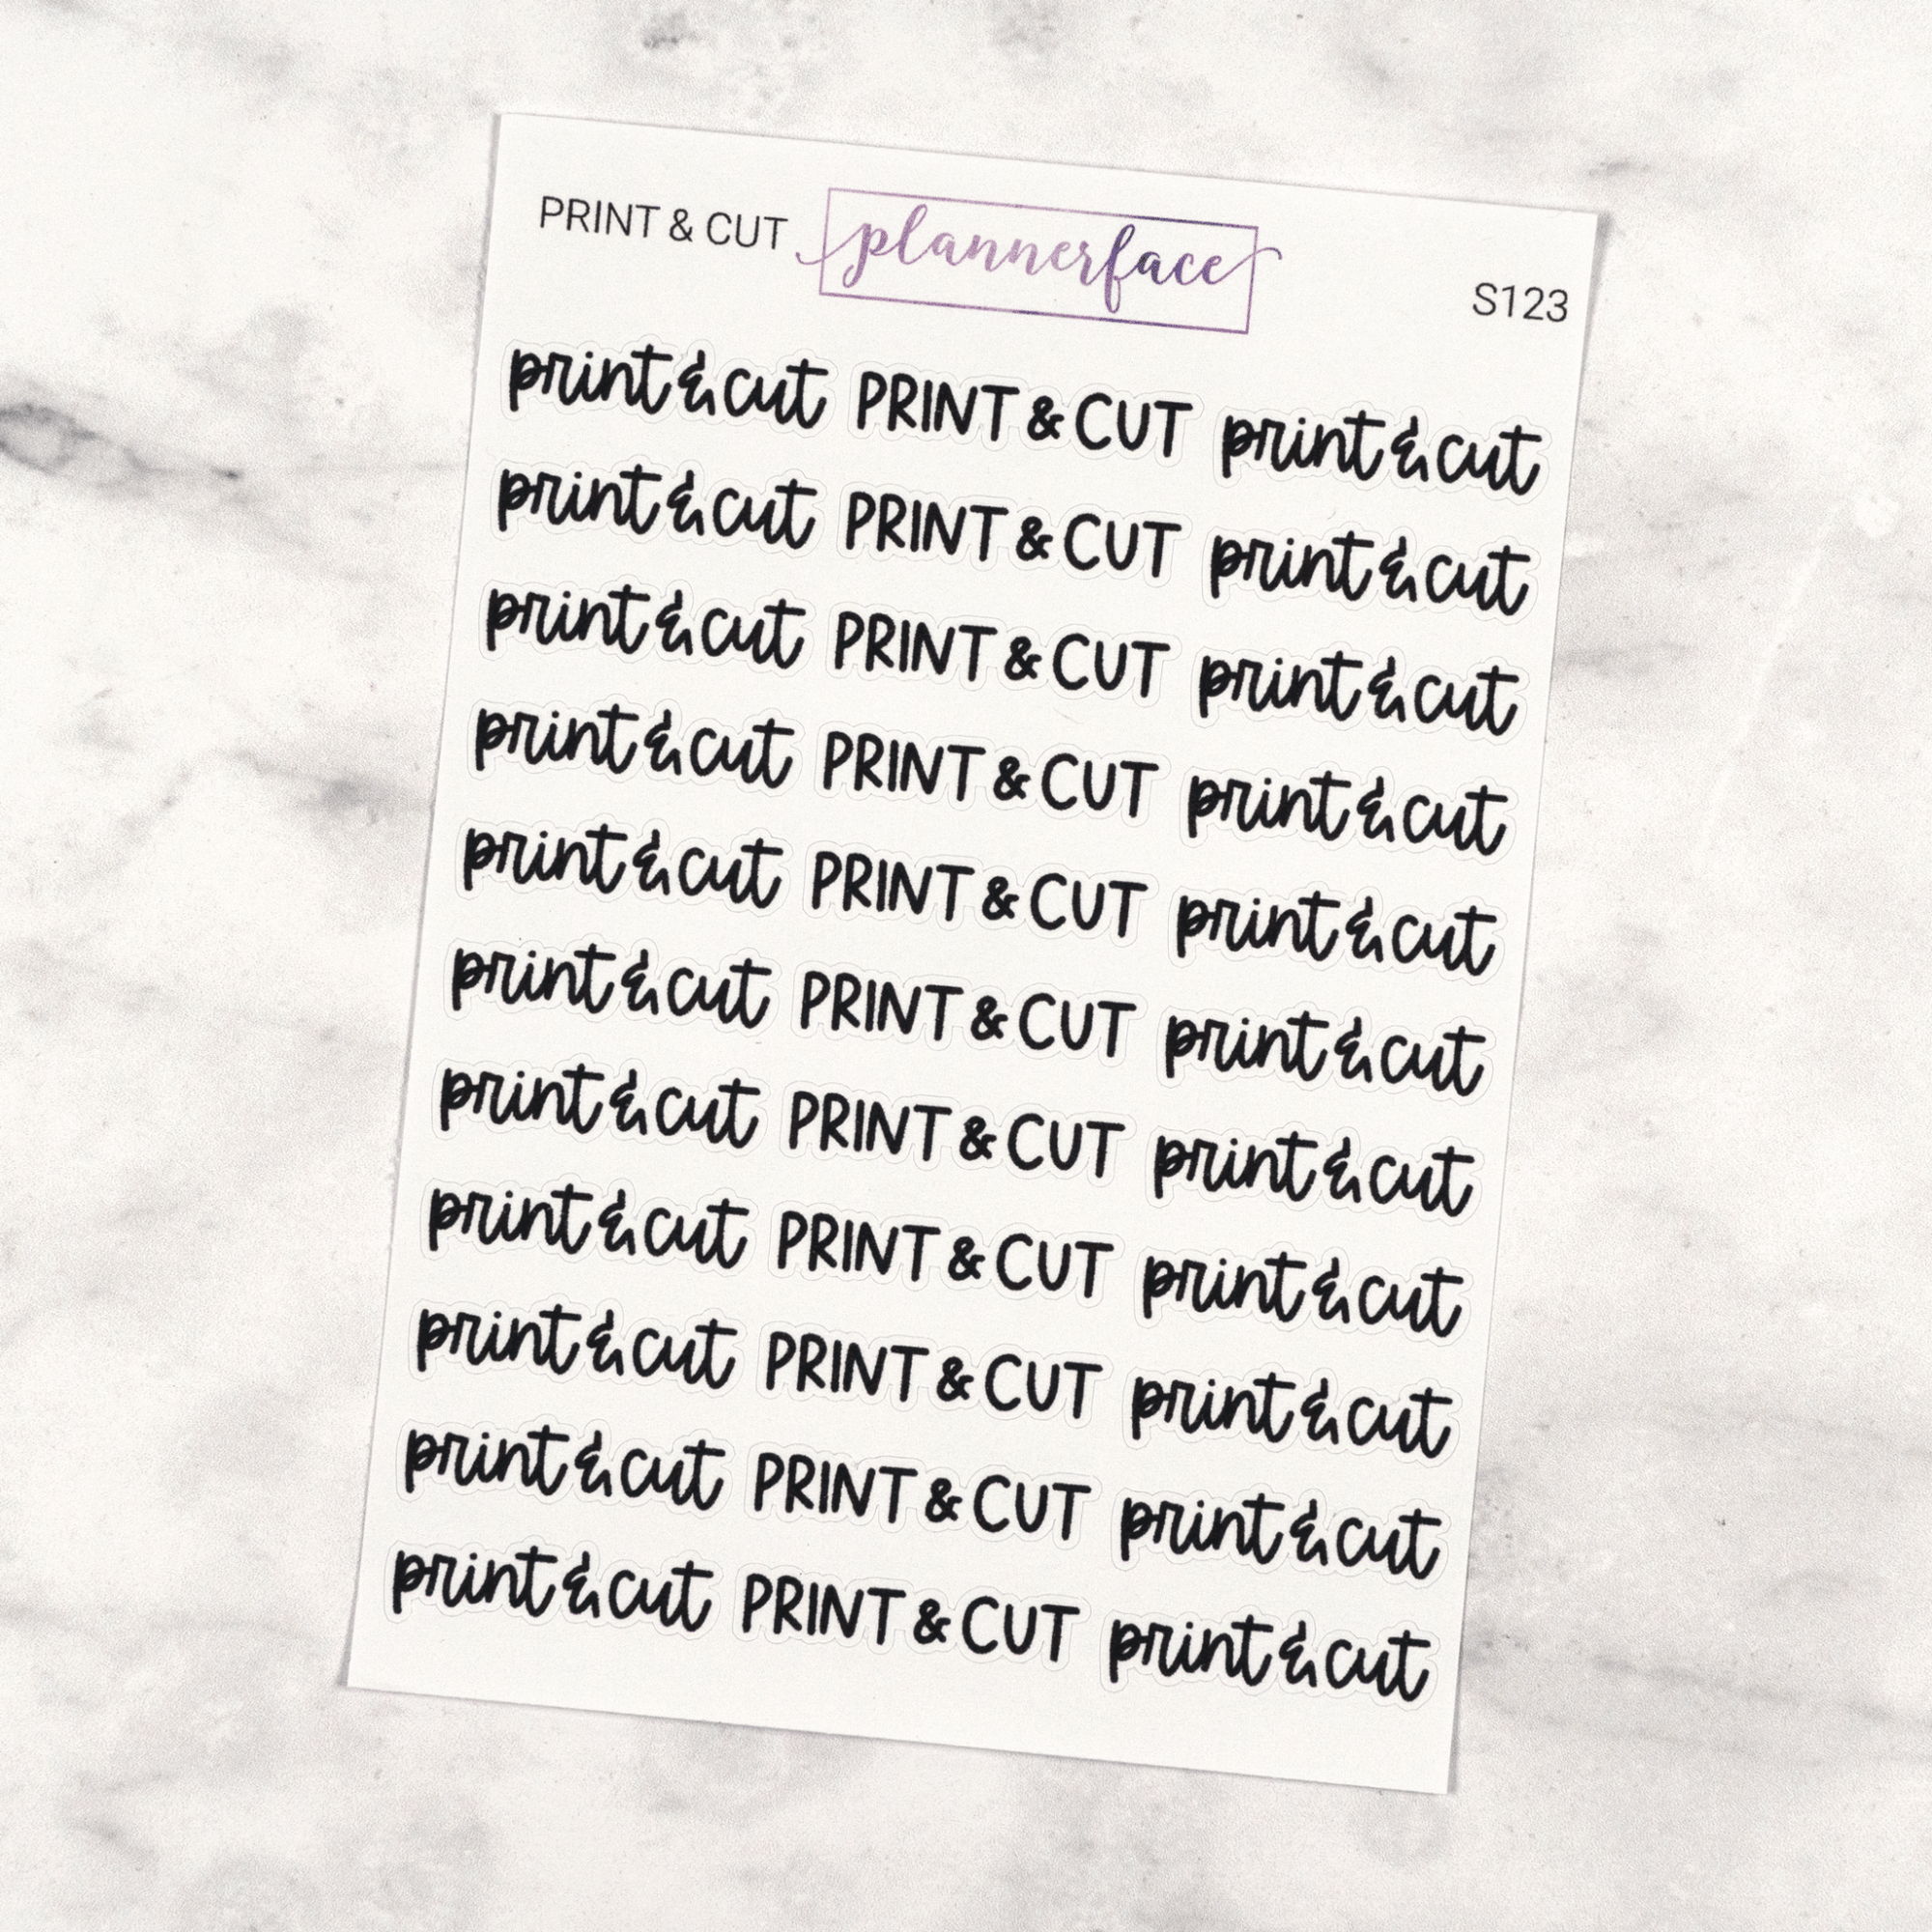 PRINT & CUT plannerface S123
print & cut PRINT & CUT print & cut
print & cut PRINT & CUT print & cut
print & cut PRINT & CUT print & cut
print & cut PRINT & CUT print & cut
print & cut PRINT & CUT print & cut
print & cut PRINT & CUT print & cut
print & cut PRINT & CUT print & cut
print & cut PRINT & CUT print & cut
print & cut PRINT & CUT print & cut
print & cut PRINT & CUT print & cut
print & cut PRINT & CUT print & cut